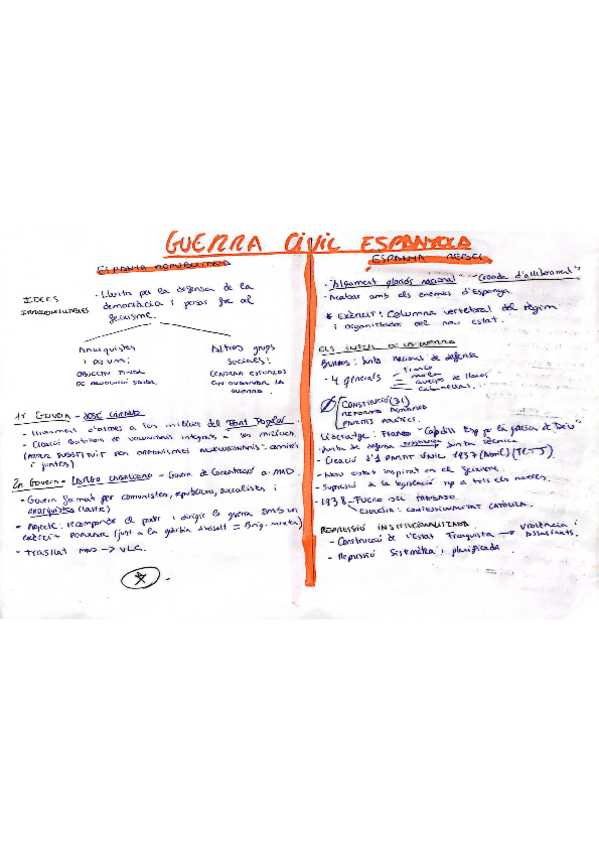 GUERRA CIVIL ESPANYOLA
ESPANYA REPUBLICANA
IDEES
- Lluita per la defensa de la
democràcia i posar fre al
feixisme.
Anarquistes
i POUM:
OBJECTIU FINAL
DE REVOLUCIÓ SOCIAL
Altres grups
socials:
CENTRAR ESFORÇOS
EN GUANYAR LA
GUERRA
1r GOVERN - JOSÉ GIRAL
- Lliurament d'armes a les milícies del Front Popular
- Creació batallons de voluntaris integrats a les milícies.
(PODER SUBSTITUIT PER ORGANISMES REVOLUCIONARIS: comitès
i juntes)
2n GOVERN - LARGO CABALLERO - Govern de Concentració a MAD
- Govern format per comunistes, republicans, socialistes i
anarquistes
- Objectiu: recompondre el poder i dirigir la guerra amb un
exèrcit POPULAR (junt a la guàrdia d'assalt = Brig. mixtes)
- Trasllat MAD → VLC.
ESPANYA REBEL
- "Alçament gloriós nacional" - "Creuada d'alliberament"
- Acabar amb els enemics d'Espanya
* EXÈRCIT: Columna vertebral del règim
i organitzador del nou estat.
ELS INICIS DE LA GUERRA
Burgos: Junta Nacional de defensa
- 4 generals
- Franco
- Mola
- Queipo de Llano
- Cabanellas.
CONSTITUCIÓ (31)
REFORMA AGRÀRIA
PARTITS POLÍTICS.
Lideratge: Franco "Cabdill Esp per la gràcia de Déu"
- Junta de defensa junta tècnica
- Creació d'1 PARTIT ÚNIC 1937 (Abril) (FET JONS)
- Nou estat inspirat en el feixisme.
- Supressió de la legislació rep a tots els nivells.
- 1938 - FUERO DEL TRABAJO
CONFESSIONALITAT CATÒLICA.
REPRESSIÓ INSTITUCIONALITZADA
- Construcció de l'Estat Franquista → violència i
assassinats.
- Repressió sistemàtica i planificada